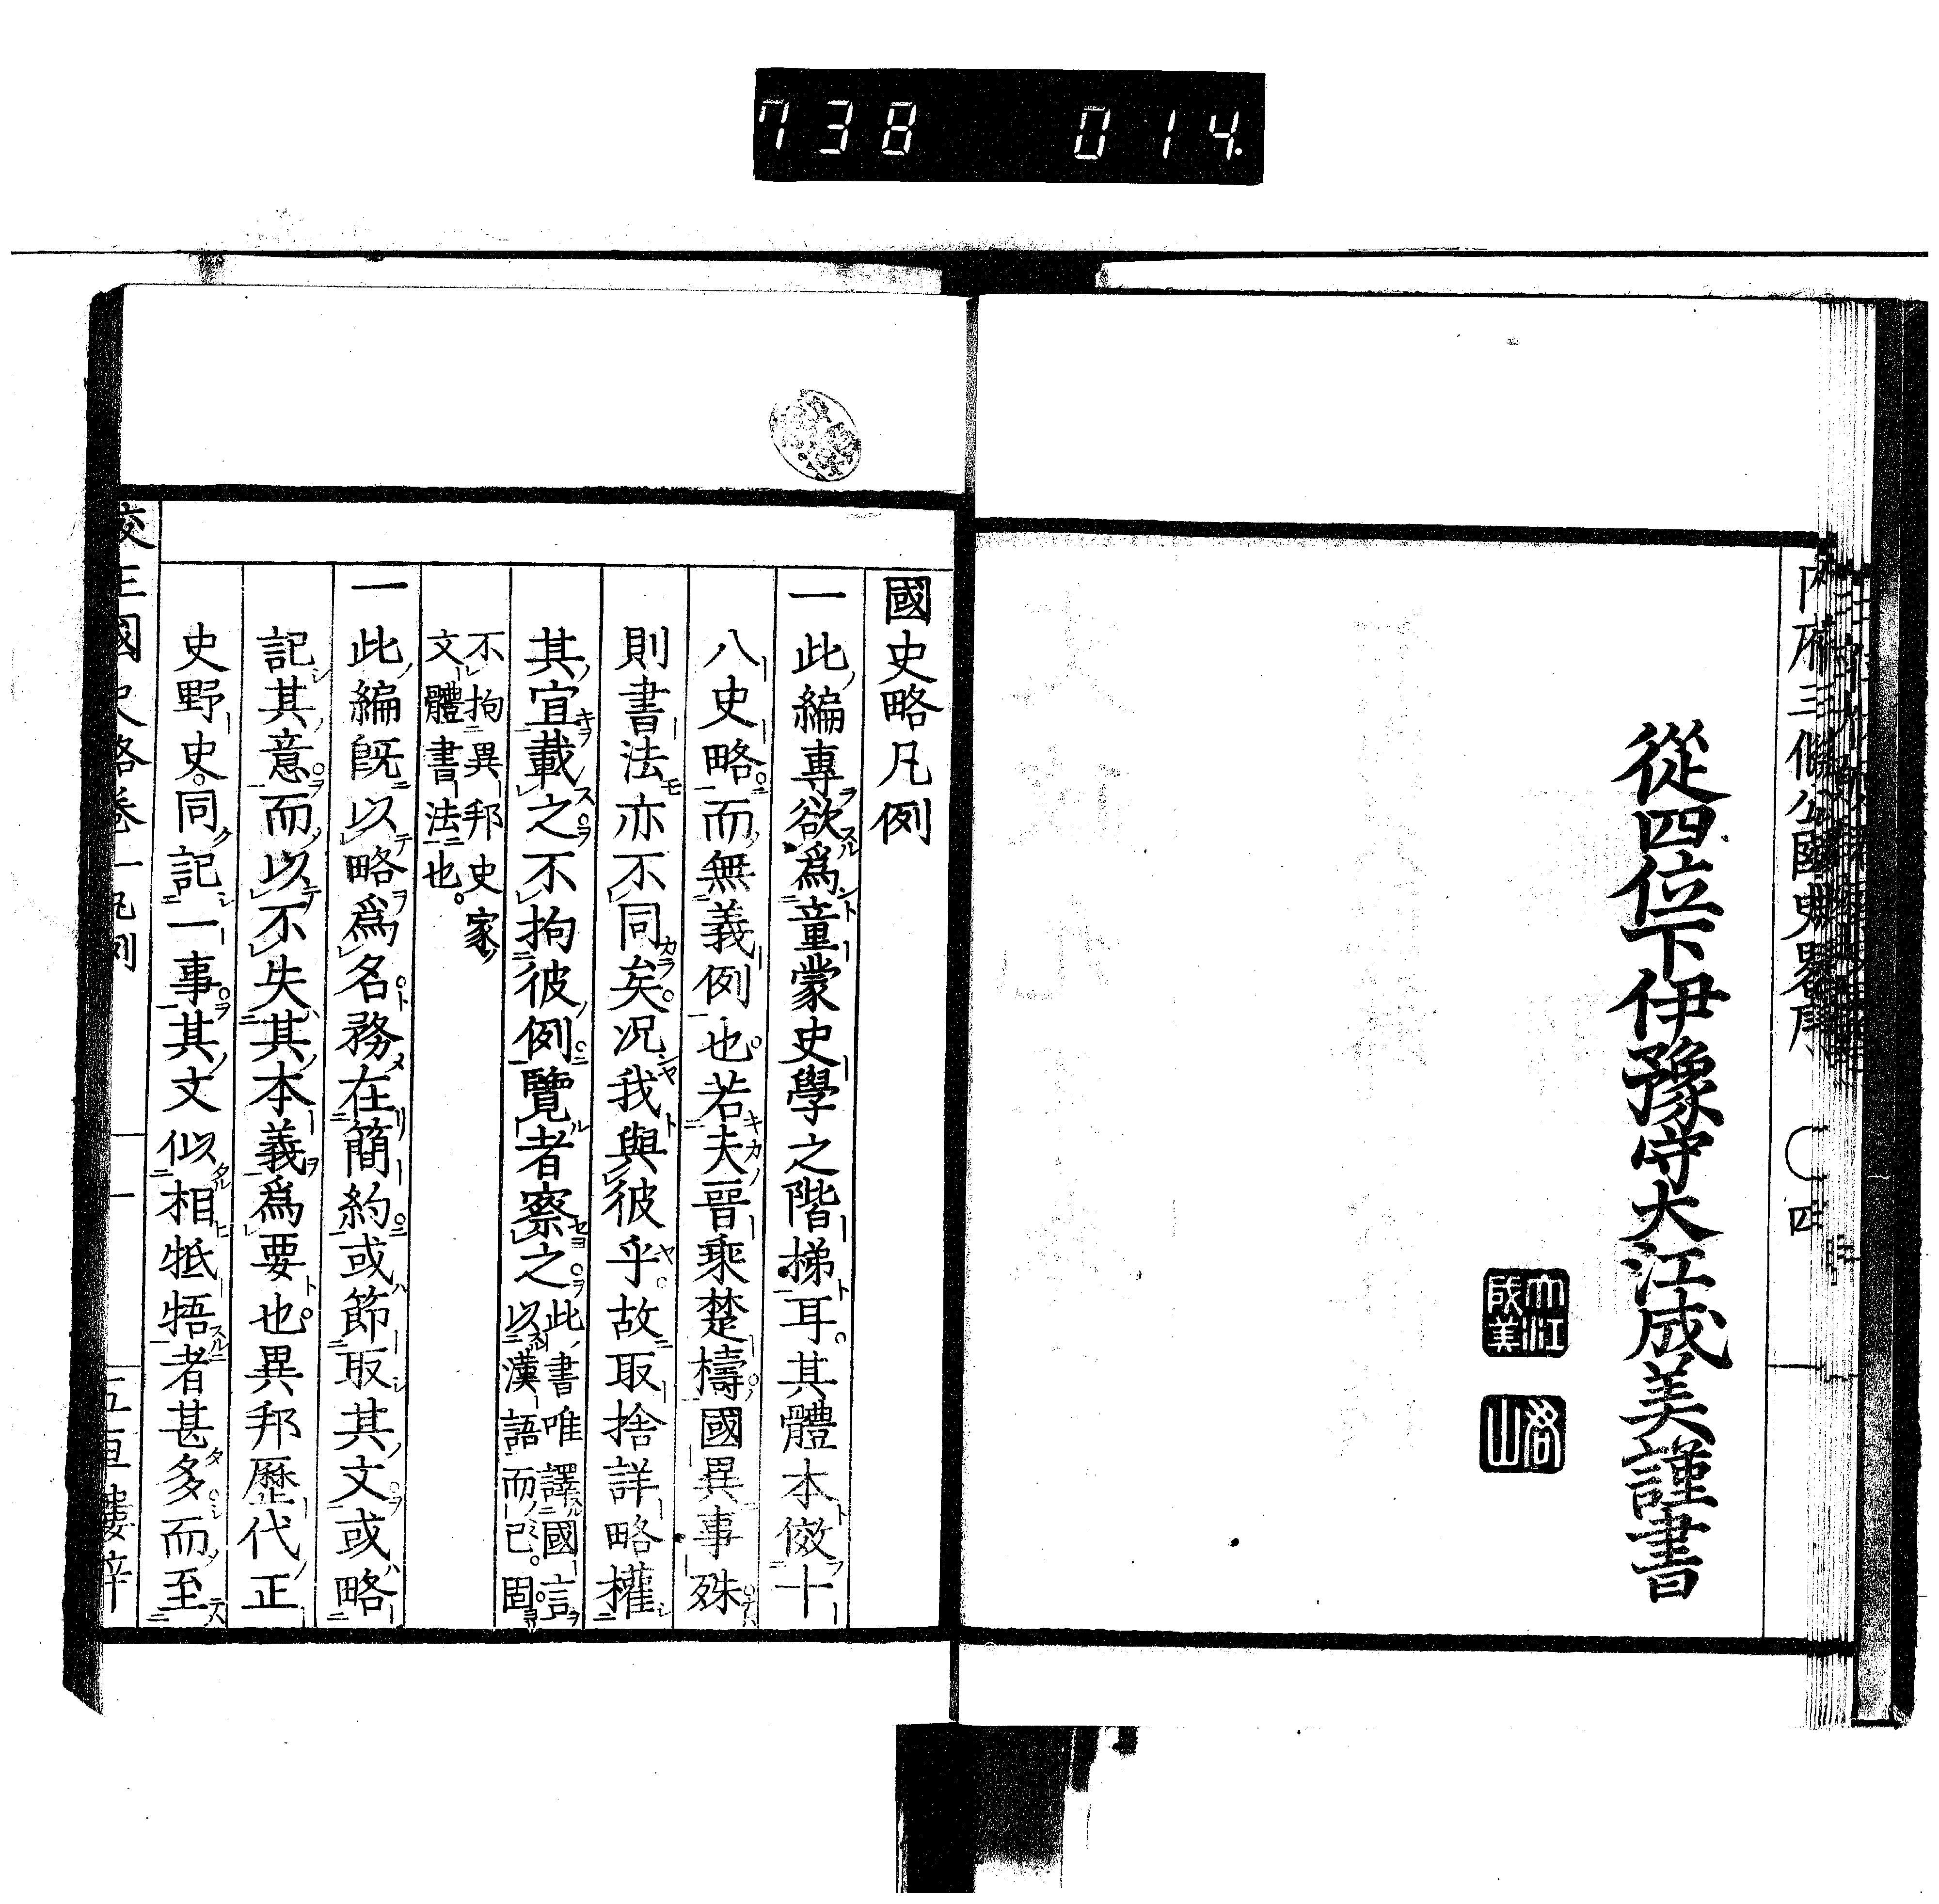 738 014
從四位下伊豫守大江成美謹書
大江成美
國史略凡例
一此編專欲爲童蒙史學之階梯耳其體本倣十
八史略而無義例也若夫晉乘楚檮國異事殊
則書法亦不同矣况我與彼乎故取捨詳略權
其宜載之不拘彼例覽者察之此書唯譯國言
以漢語而已固
不拘異邦史家
文體書法也
一此編既以略爲名務在簡約或節取其文或略
記其意而以不失其本義爲要也異邦歷代正
史野史同記一事其文似相牴牾者甚多而至